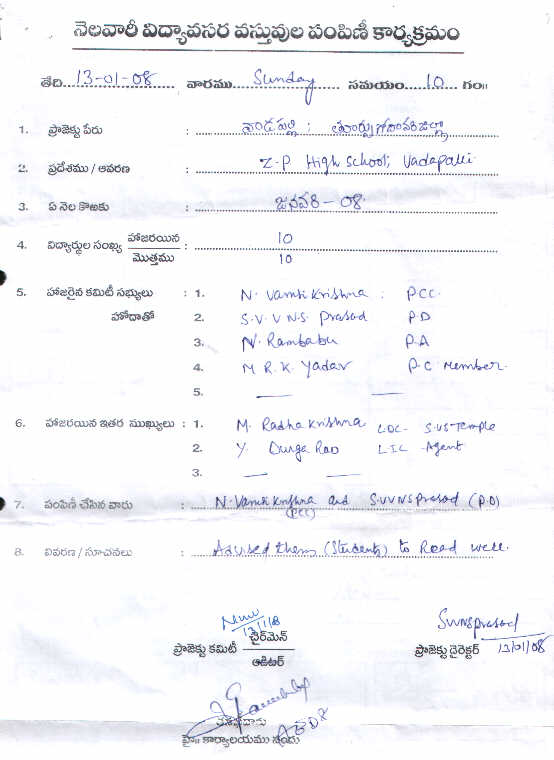 నెలవారీ విద్యావసర వస్తువుల పంపిణీ కార్యక్రమం
తేది. 13-01-08 వారము.. Sunday ... సమయం... 10 ... గం॥
1. ప్రాజెక్టు పేరు : వాడపల్లి ; తూర్పుగోదావరిజిల్లా
2. ప్రదేశము / ఆవరణ : Z.P High School, Vadapalli
3. ఏ నెల కొఱకు : జనవరి - 08.
4. విద్యార్థుల సంఖ్య హాజరయిన : 10
మొత్తము 10
5. హాజరైన కమిటీ సభ్యులు : 1. N. Vamsi Krishna : PCC.
హోదాతో 2. S.V.V.N.S. Prasad P.D
3. N. Rambabu P.A
4. M R.K. Yadav P.C Member.
5. — —
6. హాజరయిన ఇతర ముఖ్యులు : 1. M. Radha Krishna LDC- S.V.S Temple
2. Y. Durga Rao LIC - Agent
3. — —
7. పంపిణీ చేసిన వారు : N. Vamsi Krishna and S.V.V.N.S Prasad (P.D)
(PCC)
8. వివరణ / సూచనలు : Advised them (Students) to Read well.
13/1/8 SVVNSPrasad
ప్రాజెక్టు కమిటీ ఛైర్‌మెన్ ప్రాజెక్టు డైరెక్టర్ 13/01/08
ఆడిటర్
హై॥ కార్యాలయము నందు